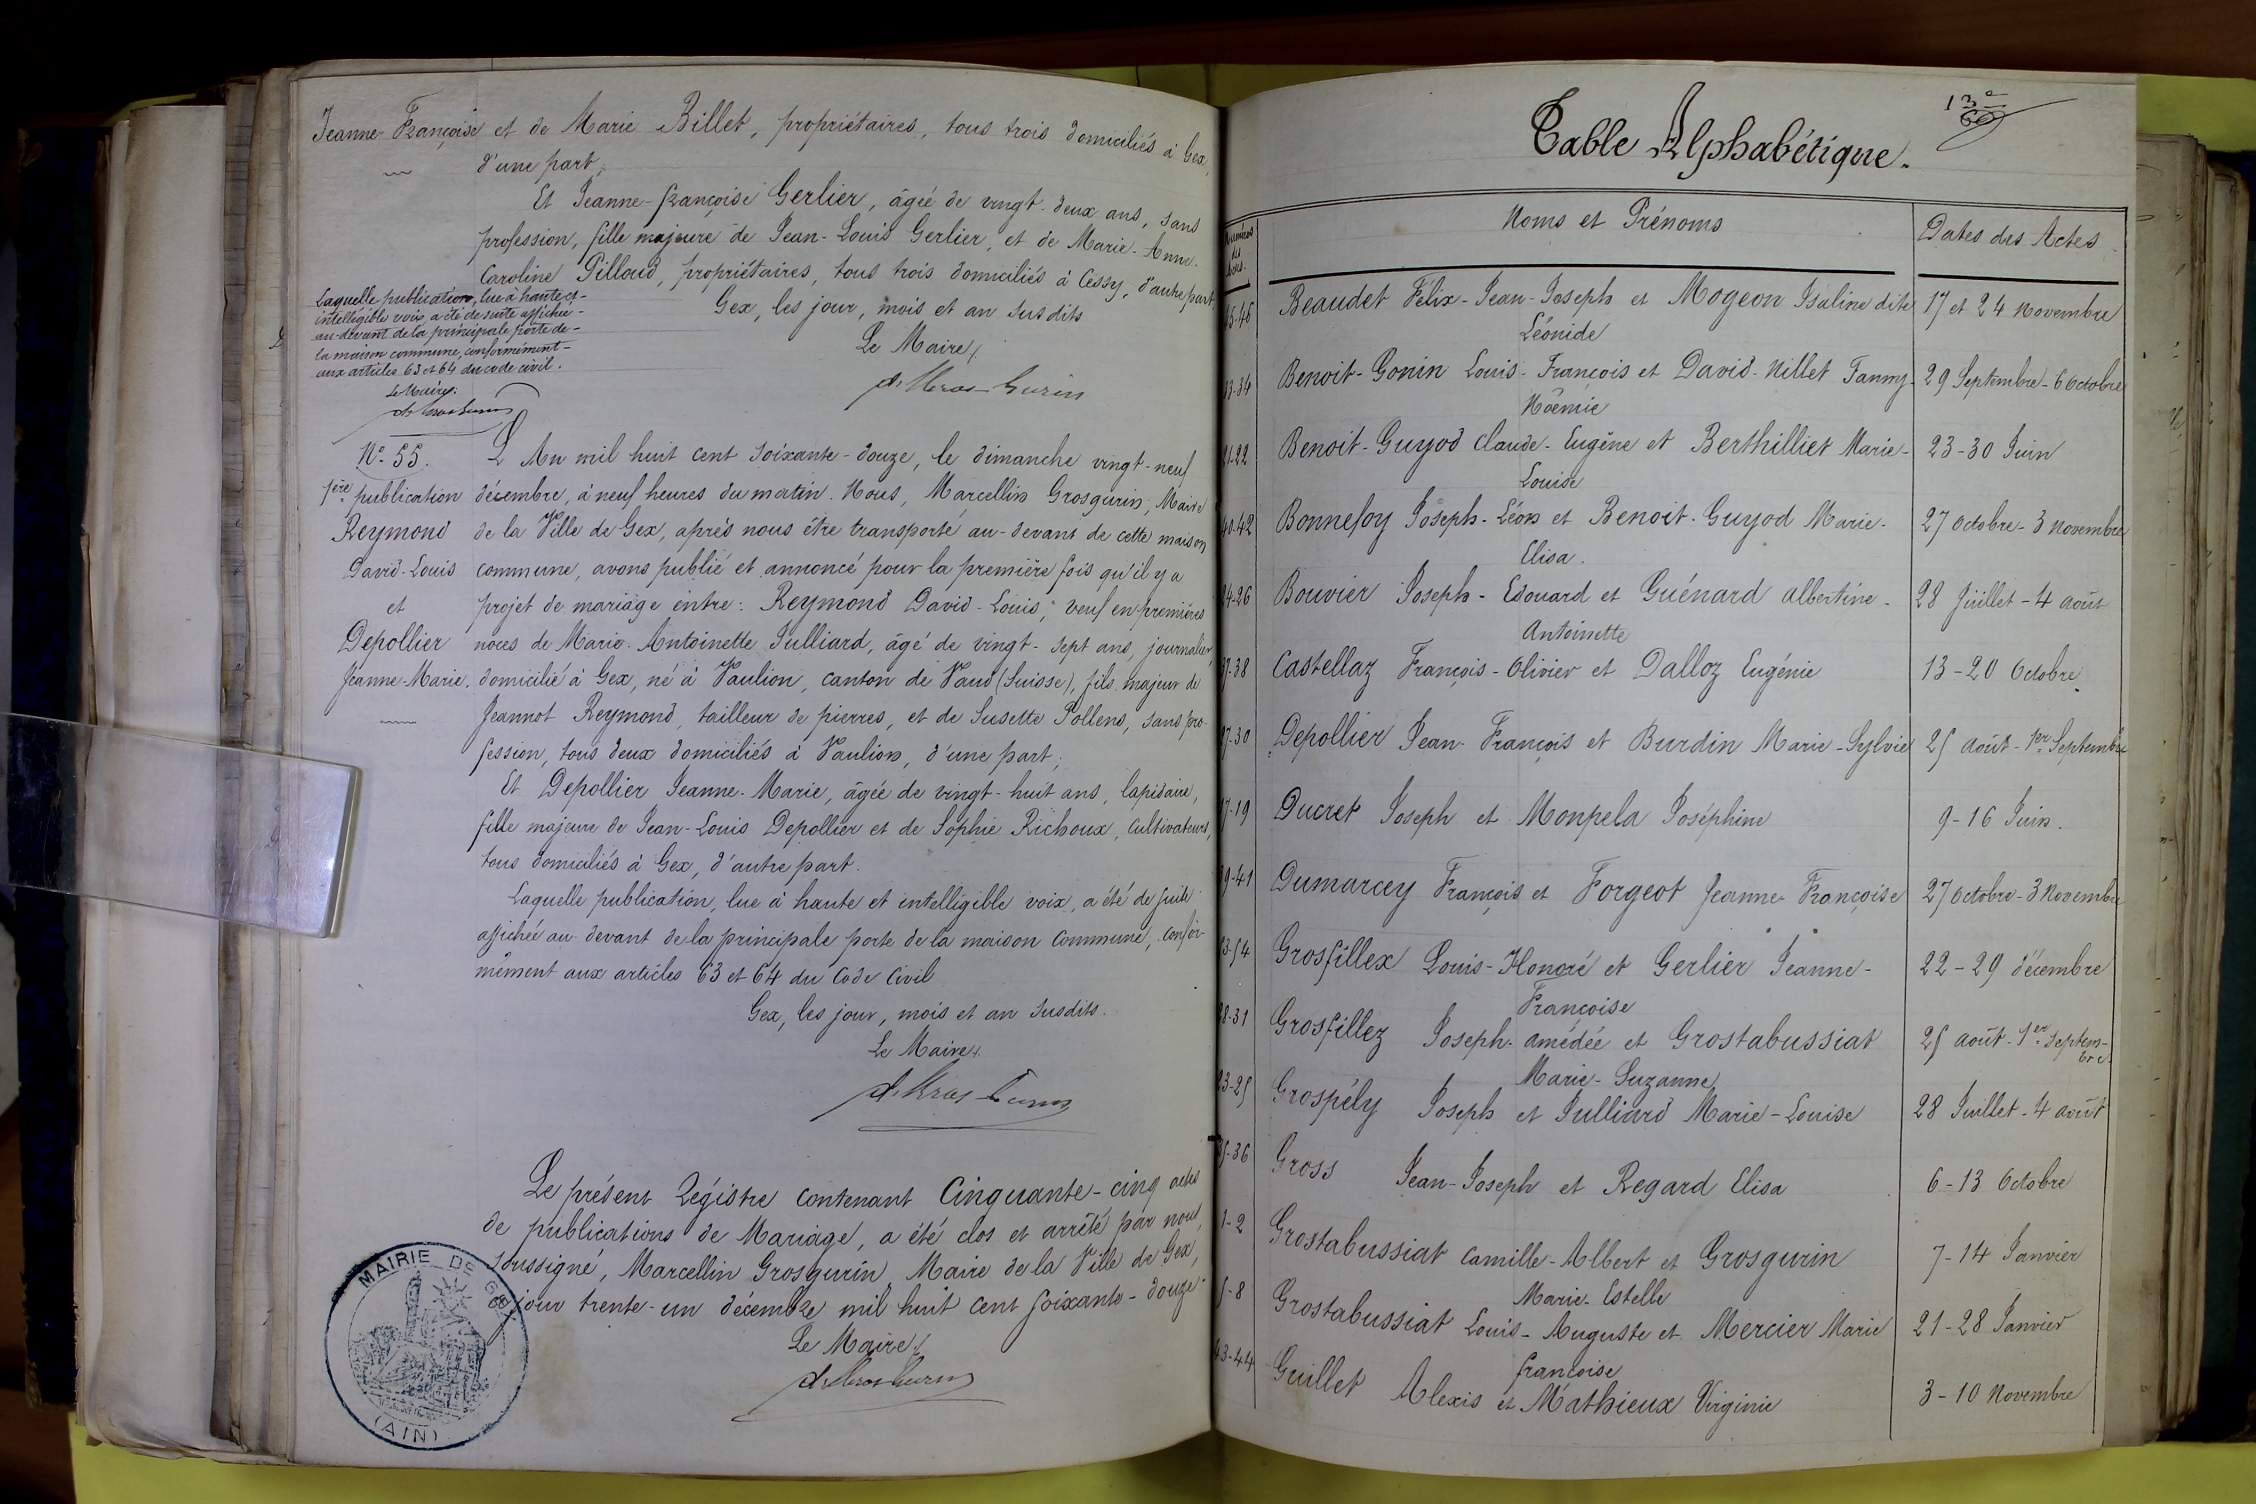 Jeanne-Françoise et de Marie Billet, propriétaires, tous trois domiciliés à Gex,
d'une part;
Et Jeanne-françoise Gerlier, âgée de vingt-deux ans, sans
profession, fille majeure de Jean-Louis Gerlier, et de Marie-Anne-
Caroline Pilloud, propriétaires, tous trois domiciliés à Cessy, d'autre part
Gex, les jour, mois et an susdits
Le Maire,
Laquelle publication, lue à haute et-
intelligible voix, a été de suite affichée-
au-devant de la principale porte de-
la maison commune, conformément-
aux articles 63 et 64 du code civil.
Le Maire:
N° 55.
1ère publication
Reymond
David-Louis
et
Depollier
Jeanne-Marie.
L'An mil huit cent soixante-douze, le dimanche vingt-neuf
décembre, à neuf heures du matin. Nous, Marcellin Grosgurin, Maire
de la Ville de Gex, après nous être transporté au-devant de cette maison
commune, avons publié et annoncé pour la première fois qu'il y a
projet de mariage entre: Reymond David-Louis, veuf en premières
noces de Marie-Antoinette Julliard, âgé de vingt-sept ans, journalier,
domicilié à Gex, né à Vaulion, canton de Vaud (Suisse), fils majeur de
Jeannot Reymond, tailleur de pierres, et de Susette Pollens, sans pro-
fession, tous deux domiciliés à Vaulion, d'une part;
Et Depollier Jeanne-Marie, âgée de vingt-huit ans, lapidaire,
fille majeure de Jean-Louis Depollier et de Sophie Richoux, cultivateurs,
tous domiciliés à Gex, d'autre part.
Laquelle publication, lue à haute et intelligible voix, a été de suite
affichée au-devant de la principale porte de la maison commune, confor-
mément aux articles 63 et 64 du Code Civil
Gex, les jour, mois et an susdits.
Le Maire,
Le présent Registre contenant Cinquante-cinq actes
de publications de Mariage, a été clos et arrêté par nous,
soussigné, Marcellin Grosgurin, Maire de la Ville de Gex,
ce jour trente-un décembre mil huit cent soixante-douze
Le Maire,
MAIRIE DE GEX
(AIN)
13e
Table Alphabétique.
Numéros des Actes.
Noms et Prénoms
Dates des Actes
45-46 Beaudet Félix-Jean-Joseph et Mogeon Isaline dite 17 et 24 Novembre
Léonide
33-34 Benoit-Gonin Louis-François et David-Nillet Fanny- 29 Septembre-6 Octobre
Noëmie
21-22 Benoit-Guyod Claude-Eugène et Berthilliet Marie- 23-30 Juin
Louise
40-42 Bonnefoy Joseph-Léon et Benoit-Guyod Marie- 27 Octobre-3 Novembre
Elisa.
24-26 Bouvier Joseph-Edouard et Guénard Albertine- 28 Juillet-4 août
Antoinette
37-38 Castellaz François-Olivier et Dalloz Eugénie 13-20 Octobre
27-30 Depollier Jean-François et Burdin Marie-Sylvie 25 août-1er Septembre
17-19 Ducret Joseph et Monpela Joséphine 9-16 Juin.
39-41 Dumarcey François et Forgeot Jeanne-Françoise 27 Octobre-3 Novembre
53-54 Grosfillex Louis-Honoré et Gerlier Jeanne- 22-29 décembre
Françoise
28-31 Grosfillez Joseph-amédée et Grostabussiat 25 août-1er septem-
bre.
Marie-Suzanne
23-25 Grospély Joseph et Julliard Marie-Louise 28 Juillet-4 août
35-36 Gross Jean-Joseph et Regard Elisa 6-13 Octobre
1-2 Grostabussiat Camille-Albert et Grosgurin 7-14 Janvier
Marie-Estelle
5-8 Grostabussiat Louis-Auguste et Mercier Marie 21-28 Janvier
françoise
43-44 Guillet Alexis et Mathieux Virginie 3-10 Novembre